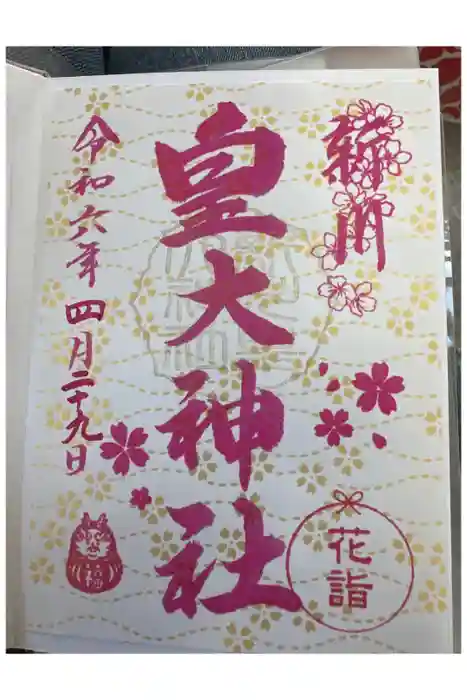 花詣
皇大神社
令和六年四月二十九日
福